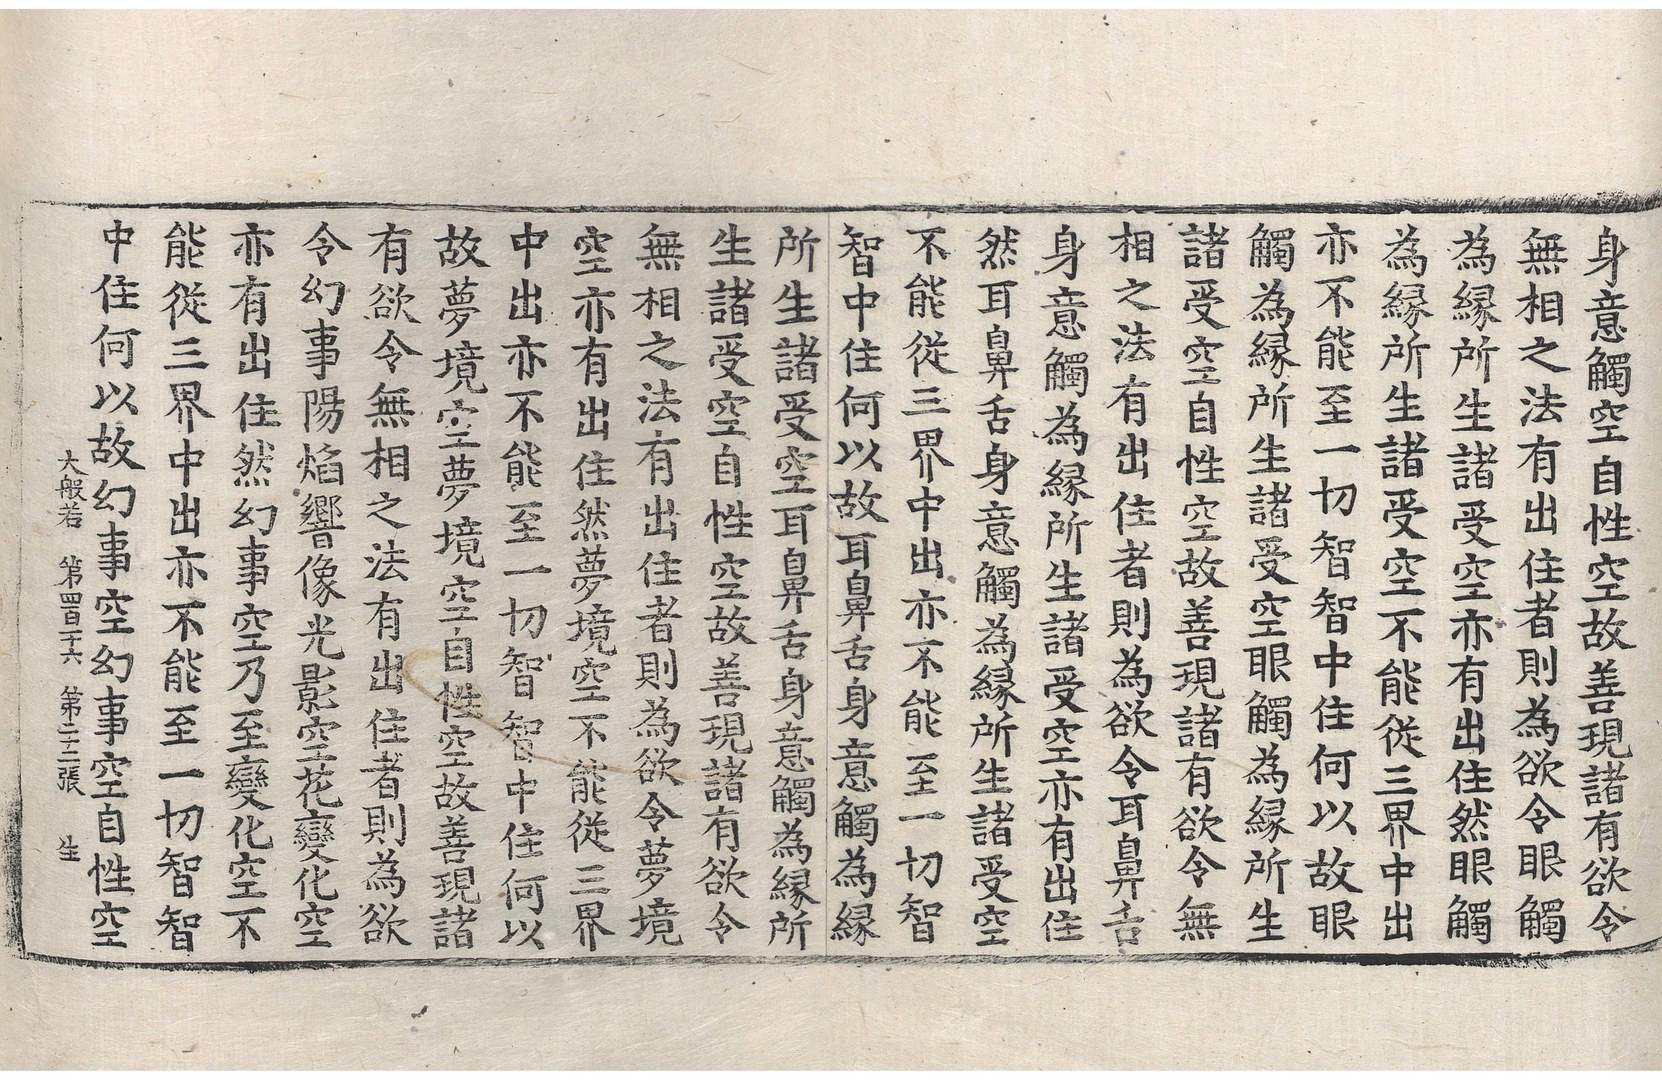 身意觸空自性空故善現諸有欲令
無相之法有出住者則為欲令眼觸
為緣所生諸受空亦有出住然眼觸
為緣所生諸受空不能從三界中出
亦不能至一切智智中住何以故眼
觸為緣所生諸受空眼觸為緣所生
諸受空自性空故善現諸有欲令無
相之法有出住者則為欲令耳鼻舌
身意觸為緣所生諸受空亦有出住
然耳鼻舌身意觸為緣所生諸受空
不能從三界中出亦不能至一切智
智中住何以故耳鼻舌身意觸為緣
所生諸受空耳鼻舌身意觸為緣所
生諸受空自性空故善現諸有欲令
無相之法有出住者則為欲令夢境
空亦有出住然夢境空不能從三界
中出亦不能至一切智智中住何以
故夢境空夢境空自性空故善現諸
有欲令無相之法有出住者則為欲
令幻事陽焰響像光影空花變化空
亦有出住然幻事空乃至變化空不
能從三界中出亦不能至一切智智
中住何以故幻事空幻事空自性空
大般若 第四百十六 第二十二張 生